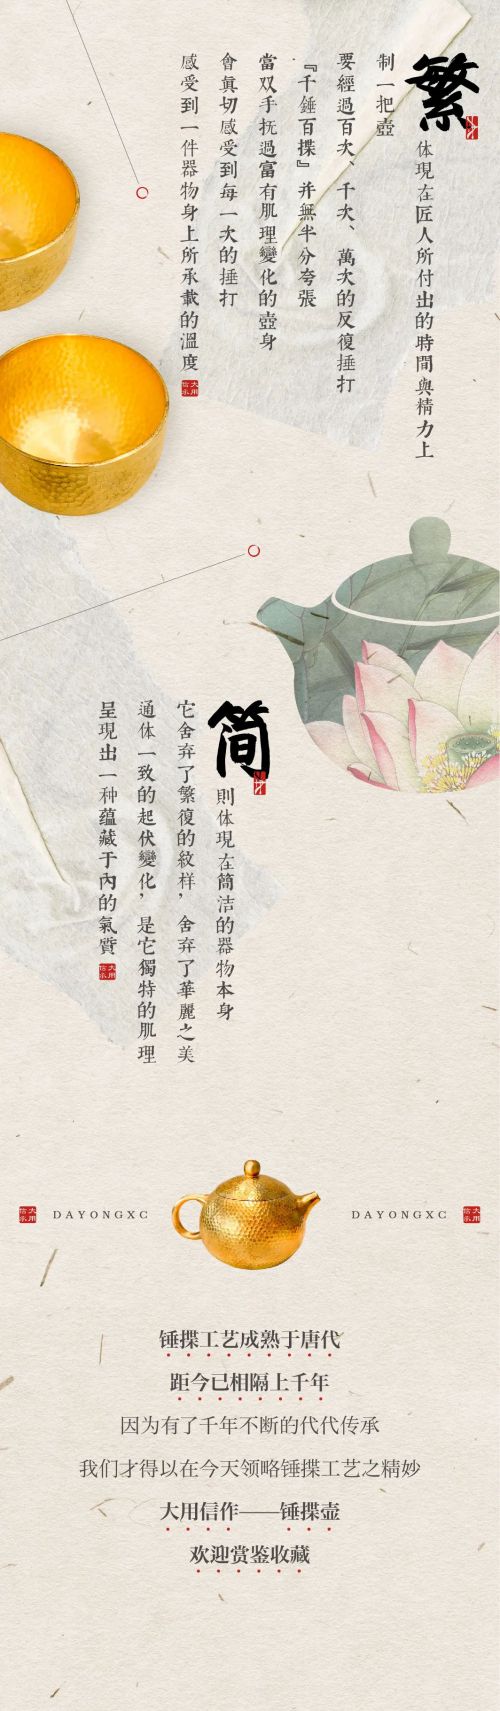 繁
体現在匠人所付出的時間與精力上
制一把壺
要經過百次、千次、萬次的反復捶打
『千錘百揲』并無半分夸張
當双手抚過富有肌理變化的壺身
會真切感受到每一次的捶打
感受到一件器物身上所承載的溫度
大用信承
简
則体現在簡洁的器物本身
它舍弃了繁復的紋样，舍弃了華麗之美
通体一致的起伏變化，是它獨特的肌理
呈現出一种蕴藏于內的氣質
大用信承
大用信承
DAYONGXC
DAYONGXC
大用信承
锤揲工艺成熟于唐代
距今已相隔上千年
因为有了千年不断的代代传承
我们才得以在今天领略锤揲工艺之精妙
大用信作——锤揲壶
欢迎赏鉴收藏